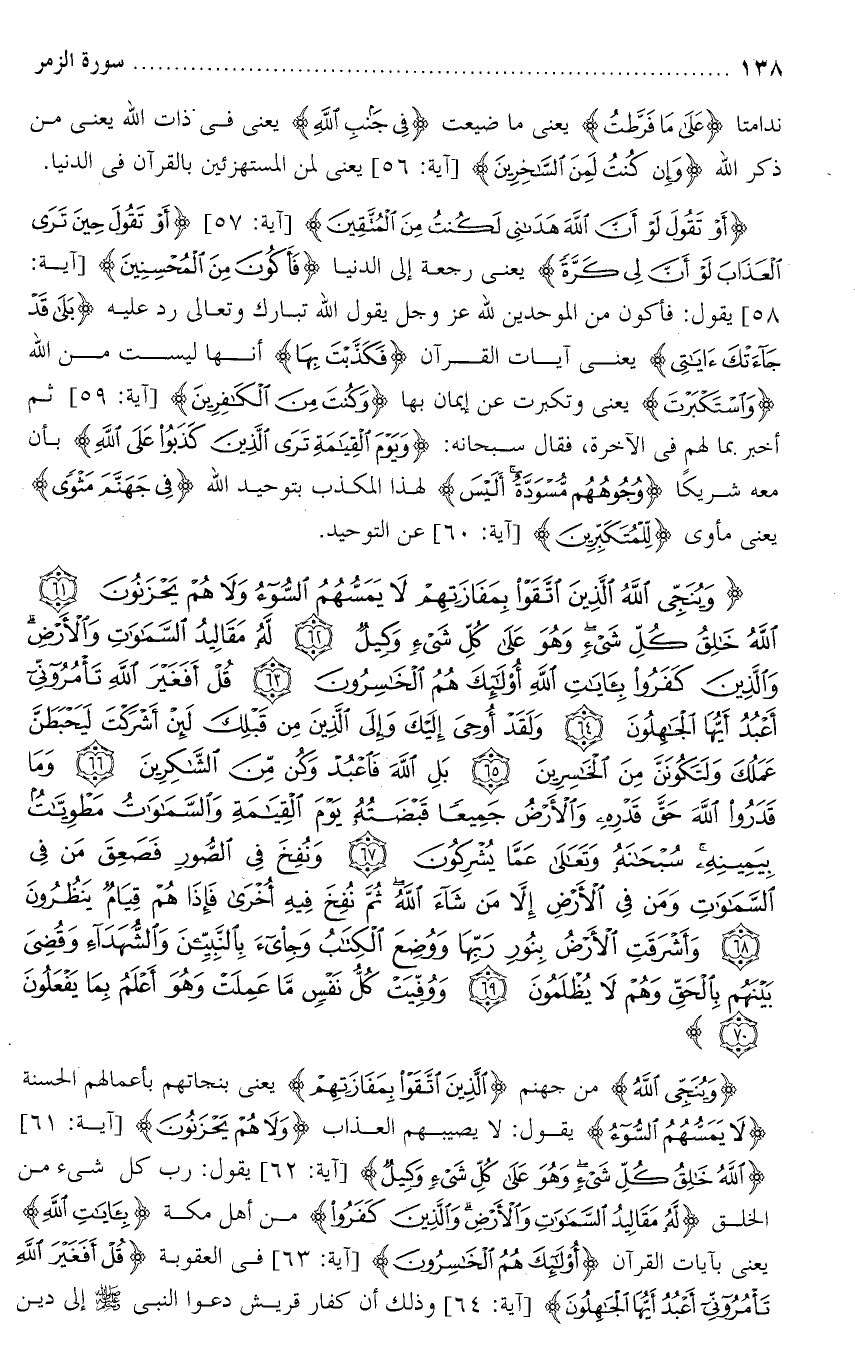 ١٣٨ ........................................................................ سورة الزمر
ندامتا ﴿عَلَىٰ مَا فَرَّطتُ﴾ يعنى ما ضيعت ﴿فِى جَنۢبِ ٱللَّهِ﴾ يعنى فى ذات الله يعنى من
ذكر الله ﴿وَإِن كُنتُ لَمِنَ ٱلسَّٰخِرِينَ﴾ [آية: ٥٦] يعنى لمن المستهزئين بالقرآن فى الدنيا.
﴿أَوْ تَقُولَ لَوْ أَنَّ ٱللَّهَ هَدَىٰنِى لَكُنتُ مِنَ ٱلْمُتَّقِينَ﴾ [آية: ٥٧] ﴿أَوْ تَقُولَ حِينَ تَرَى
ٱلْعَذَابَ لَوْ أَنَّ لِى كَرَّةً﴾ يعنى رجعة إلى الدنيا ﴿فَأَكُونَ مِنَ ٱلْمُحْسِنِينَ﴾ [آية:
٥٨] يقول: فأكون من الموحدين لله عز وجل يقول الله تبارك وتعالى رد عليه ﴿بَلَىٰ قَدْ
جَآءَتْكَ ءَايَٰتِى﴾ يعنى آيات القرآن ﴿فَكَذَّبْتَ بِهَا﴾ أنها ليست من الله
﴿وَٱسْتَكْبَرْتَ﴾ يعنى وتكبرت عن إيمان بها ﴿وَكُنتَ مِنَ ٱلْكَٰفِرِينَ﴾ [آية: ٥٩] ثم
أخبر بما لهم فى الآخرة، فقال سبحانه: ﴿وَيَوْمَ ٱلْقِيَٰمَةِ تَرَى ٱلَّذِينَ كَذَبُوا۟ عَلَى ٱللَّهِ﴾ بأن
معه شريكًا ﴿وُجُوهُهُم مُّسْوَدَّةٌ ۚ أَلَيْسَ﴾ لهذا المكذب بتوحيد الله ﴿فِى جَهَنَّمَ مَثْوًى﴾
يعنى مأوى ﴿لِّلْمُتَكَبِّرِينَ﴾ [آية: ٦٠] عن التوحيد.
﴿وَيُنَجِّى ٱللَّهُ ٱلَّذِينَ ٱتَّقَوْا۟ بِمَفَازَتِهِمْ لَا يَمَسُّهُمُ ٱلسُّوٓءُ وَلَا هُمْ يَحْزَنُونَ ٦١
ٱللَّهُ خَٰلِقُ كُلِّ شَىْءٍ ۖ وَهُوَ عَلَىٰ كُلِّ شَىْءٍ وَكِيلٌ ٦٢ لَّهُۥ مَقَالِيدُ ٱلسَّمَٰوَٰتِ وَٱلْأَرْضِ ۗ
وَٱلَّذِينَ كَفَرُوا۟ بِـَٔايَٰتِ ٱللَّهِ أُو۟لَٰٓئِكَ هُمُ ٱلْخَٰسِرُونَ ٦٣ قُلْ أَفَغَيْرَ ٱللَّهِ تَأْمُرُوٓنِّىٓ
أَعْبُدُ أَيُّهَا ٱلْجَٰهِلُونَ ٦٤ وَلَقَدْ أُوحِىَ إِلَيْكَ وَإِلَى ٱلَّذِينَ مِن قَبْلِكَ لَئِنْ أَشْرَكْتَ لَيَحْبَطَنَّ
عَمَلُكَ وَلَتَكُونَنَّ مِنَ ٱلْخَٰسِرِينَ ٦٥ بَلِ ٱللَّهَ فَٱعْبُدْ وَكُن مِّنَ ٱلشَّٰكِرِينَ ٦٦ وَمَا
قَدَرُوا۟ ٱللَّهَ حَقَّ قَدْرِهِۦ وَٱلْأَرْضُ جَمِيعًا قَبْضَتُهُۥ يَوْمَ ٱلْقِيَٰمَةِ وَٱلسَّمَٰوَٰتُ مَطْوِيَّٰتٌۢ
بِيَمِينِهِۦ ۚ سُبْحَٰنَهُۥ وَتَعَٰلَىٰ عَمَّا يُشْرِكُونَ ٦٧ وَنُفِخَ فِى ٱلصُّورِ فَصَعِقَ مَن فِى
ٱلسَّمَٰوَٰتِ وَمَن فِى ٱلْأَرْضِ إِلَّا مَن شَآءَ ٱللَّهُ ۖ ثُمَّ نُفِخَ فِيهِ أُخْرَىٰ فَإِذَا هُمْ قِيَامٌ يَنظُرُونَ
٦٨ وَأَشْرَقَتِ ٱلْأَرْضُ بِنُورِ رَبِّهَا وَوُضِعَ ٱلْكِتَٰبُ وَجِا۟ىٓءَ بِٱلنَّبِيِّـۧنَ وَٱلشُّهَدَآءِ وَقُضِىَ
بَيْنَهُم بِٱلْحَقِّ وَهُمْ لَا يُظْلَمُونَ ٦٩ وَوُفِّيَتْ كُلُّ نَفْسٍ مَّا عَمِلَتْ وَهُوَ أَعْلَمُ بِمَا يَفْعَلُونَ
٧٠ ﴾
﴿وَيُنَجِّى ٱللَّهُ﴾ من جهنم ﴿ٱلَّذِينَ ٱتَّقَوْا۟ بِمَفَازَتِهِمْ﴾ يعنى بنجاتهم بأعمالهم الحسنة
﴿لَا يَمَسُّهُمُ ٱلسُّوٓءُ﴾ يقول: لا يصيبهم العذاب ﴿وَلَا هُمْ يَحْزَنُونَ﴾ [آية: ٦١]
﴿ٱللَّهُ خَٰلِقُ كُلِّ شَىْءٍ ۖ وَهُوَ عَلَىٰ كُلِّ شَىْءٍ وَكِيلٌ﴾ [آية: ٦٢] يقول: رب كل شىء من
الخلق ﴿لَّهُۥ مَقَالِيدُ ٱلسَّمَٰوَٰتِ وَٱلْأَرْضِ ۗ وَٱلَّذِينَ كَفَرُوا۟﴾ من أهل مكة ﴿بِـَٔايَٰتِ ٱللَّهِ﴾
يعنى بآيات القرآن ﴿أُو۟لَٰٓئِكَ هُمُ ٱلْخَٰسِرُونَ﴾ [آية: ٦٣] فى العقوبة ﴿قُلْ أَفَغَيْرَ ٱللَّهِ
تَأْمُرُوٓنِّىٓ أَعْبُدُ أَيُّهَا ٱلْجَٰهِلُونَ﴾ [آية: ٦٤] وذلك أن كفار قريش دعوا النبى ﷺ إلى دين